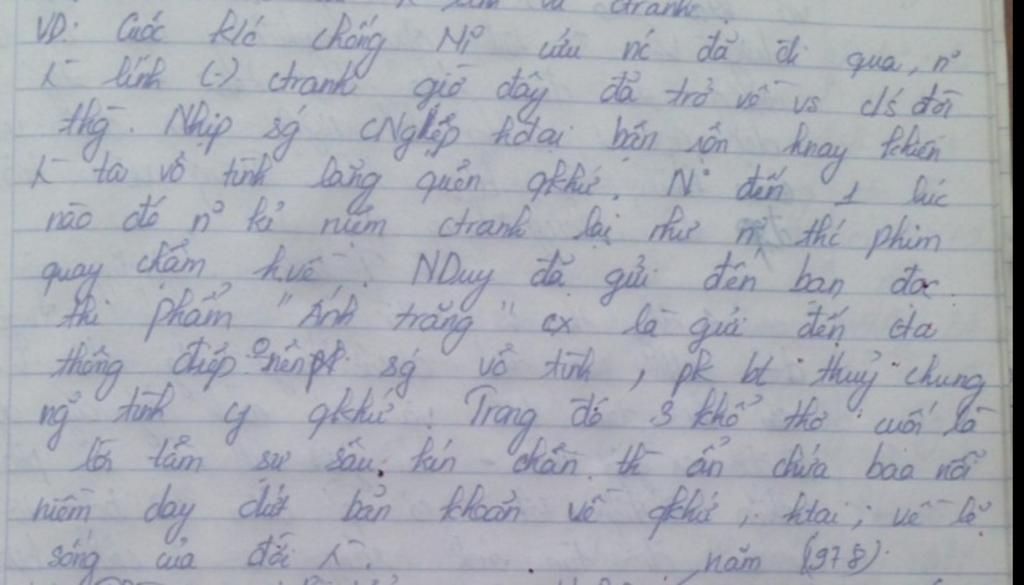 ctranh.
VD: Cuốc k/c chống Mĩ cứu nc đã đi qua, n°
lính (-) ctranh giờ đây đã trở về vs c/s đời
thg. Nhịp sg cNghiệp hđai bận rộn hnay khiến
ta vô tình lãng quên qkhứ. N° đến 1 lúc
nào đó n° kỉ niệm ctranh lại như thc phim
quay chậm h.về. NDuy đã gửi đến bạn đọc
thi phẩm "Ánh trăng" cx là gửi đến cta
thông điệp: 0 nên sg vô tình, pk bt thuỷ chung
ng° tình qkhứ. Trong đó 3 khổ thơ cuối là
lời tâm sự sâu kín chân th ẩn chứa bao nỗi
niềm day dứt băn khoăn về qkhứ, htai, về lẽ
sống của đời năm 1978).